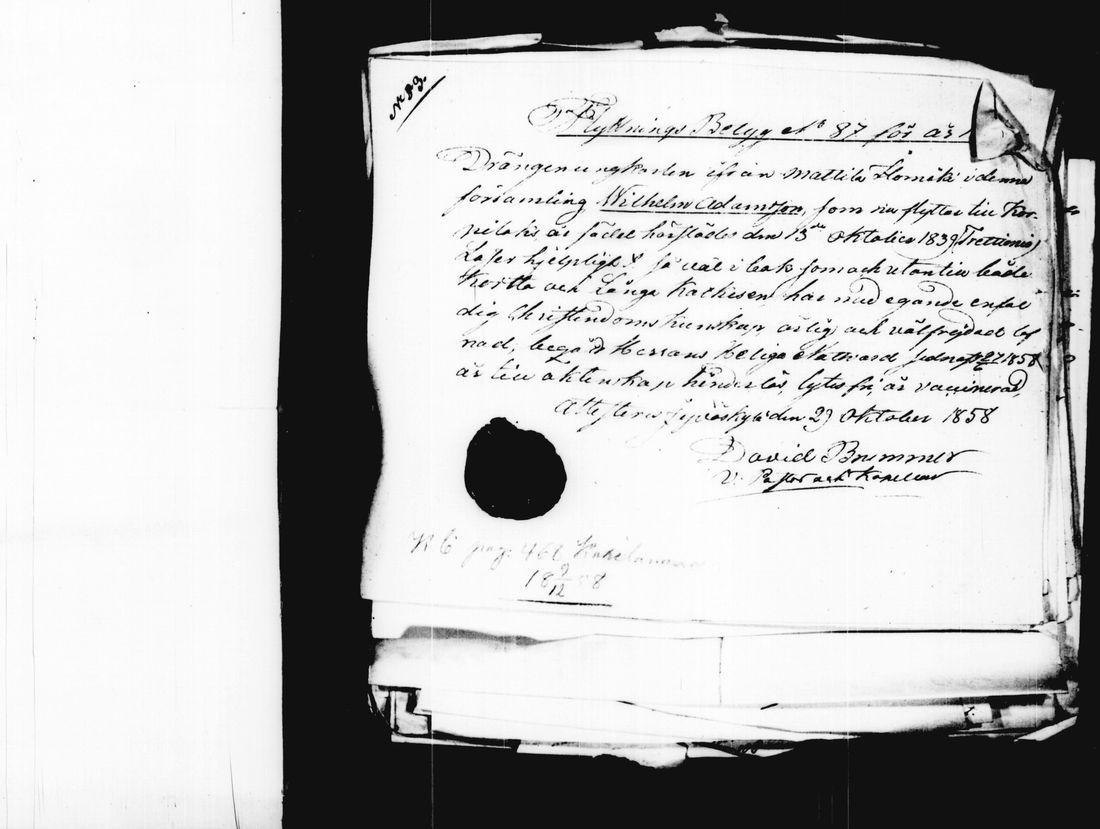 No 83.
Flyttnings Betyg No 87 för år
Drängen ungkarlen ifrån Mattila Hömäki i denna
församling Wilhelm Adamsson, som nu flyttar till Kor-
pilaks, är född härstädes den 13de Oktober 1839 (Trettionio)
Läser hjelpligt så väl i bok som och utantill både
Korta och Långa Kathesen har med egande enfal
dig Christendoms kunskap ärlig och välfrejdad lef
nad, begått Herrans Heliga Nattvard sednast 1858
är till Äktenskap hinderlös, lytesfri, är vaccinerad,
Attesteras Jyväskylä den 27 Oktober 1858
David Brummer
V. Pastor och Kapellan
K B pag: 466
18 9/12 58